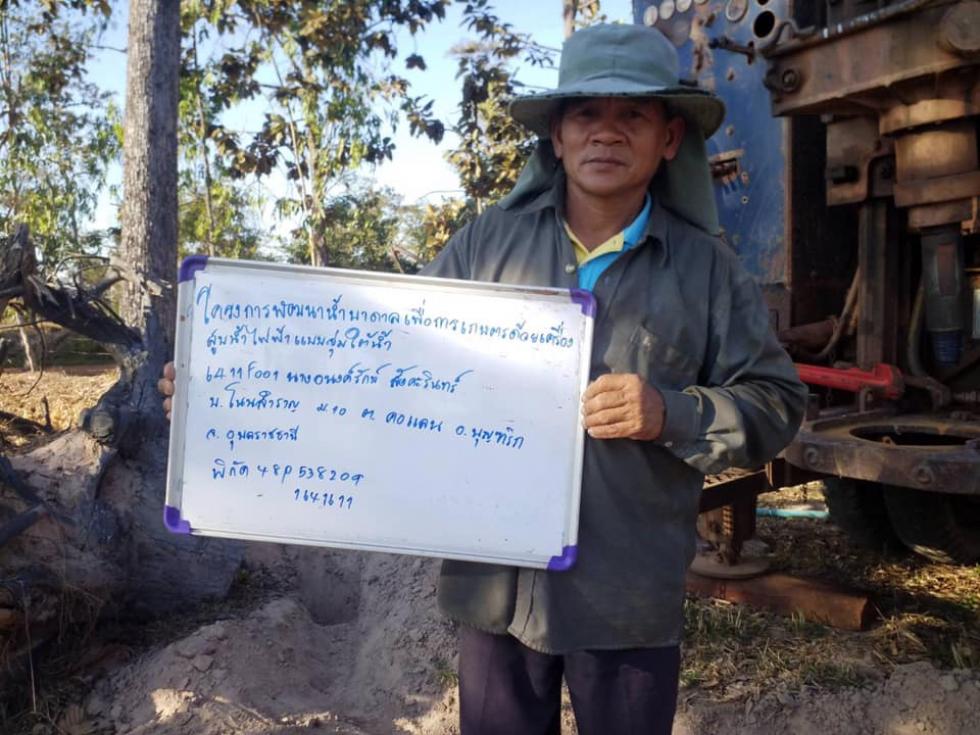 โครงการพัฒนาน้ำบาดาลเพื่อการเกษตรด้วยเครื่อง
สูบน้ำไฟฟ้าแบบจุ่มใต้น้ำ
6411F001 นางอนงค์รักษ์ สังคะรินทร์
บ. โนนสำราญ ม.10 ต. คอแลน อ. บุญฑริก
จ. อุบลราชธานี
พิกัด 48P 538209
1641611